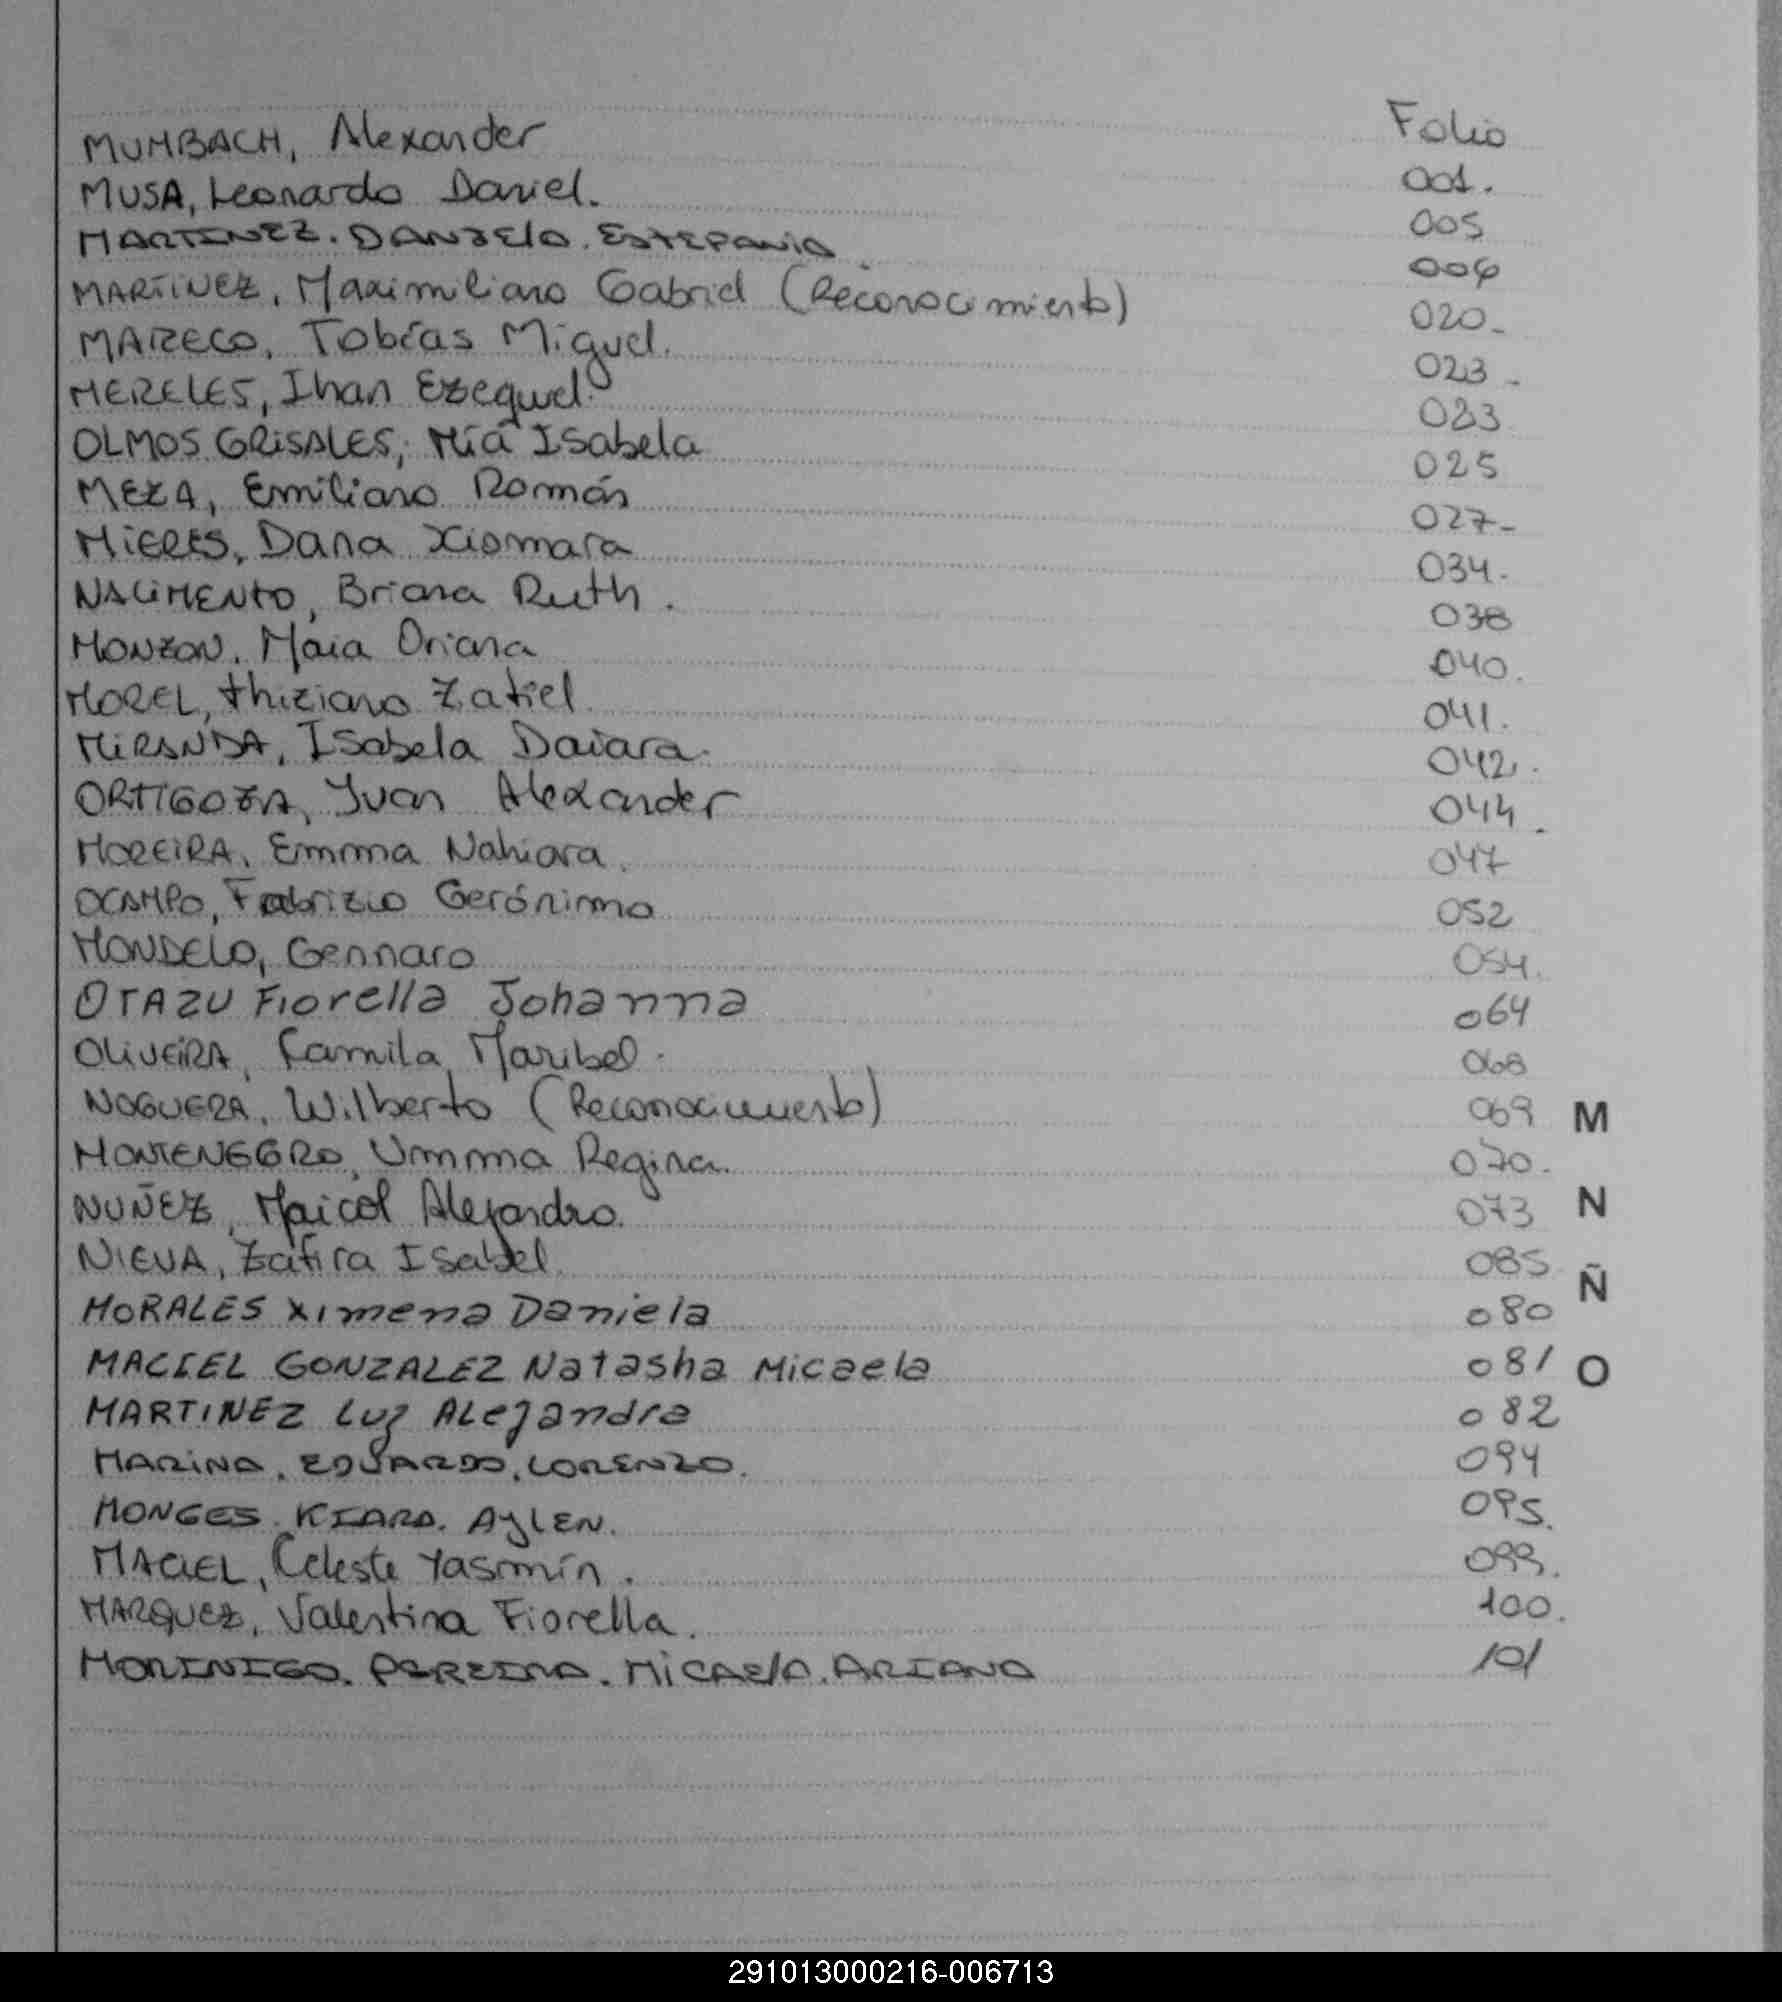 Folio
MUMBACH, Alexander 001.
MUSA, Leonardo Daniel. 005
MARTINEZ. DANIELA. ESTEFANIA 006
MARTINEZ, Maximiliano Gabriel (Reconocimiento) 020-
MARECO, Tobías Miguel. 023-
MERELES, Ihan Ezequiel. 023
OLMOS GRISALES, Mía Isabela 025
MEZA, Emiliano Román 027-
MIERES, Dana Xiomara 034.
NACIMENTO, Briana Ruth. 038
MONZON, Maia Oriana 040.
MOREL, thiziano Zatiel. 041.
MIRANDA, Isabela Daiara. 042.
ORTIGOZA, Yvan Alexander 044.
MOREIRA, Emma Nahiara. 047
OCAMPO, Fabrizio Gerónimo 052
MONDELO, Gennaro 054.
OTAZU Fiorella Johanna 064
OLIVEIRA, Camila Maribel. 068
NOGUERA, Wilberto (Reconocimiento) 069 M
MONTENEGRO, Umma Regina. 070.
NUÑEZ, Maicol Alejandro. 073 N
NIEVA, Zafira Isabel. 085
Ñ
MORALES Ximena Daniela 080
MACIEL GONZALEZ Natasha Micaela 081 O
MARTINEZ Luz ALejandra 082
MARINA. EDUARDO. LORENZO. 094
MONGES. KIARA. AYLEN. 095.
MACIEL, Celeste Yasmín. 099.
MARQUEZ, Valentina Fiorella. 100.
MORINIGO. PEREIRA. MICAELA. ARIANA 101
291013000216-006713